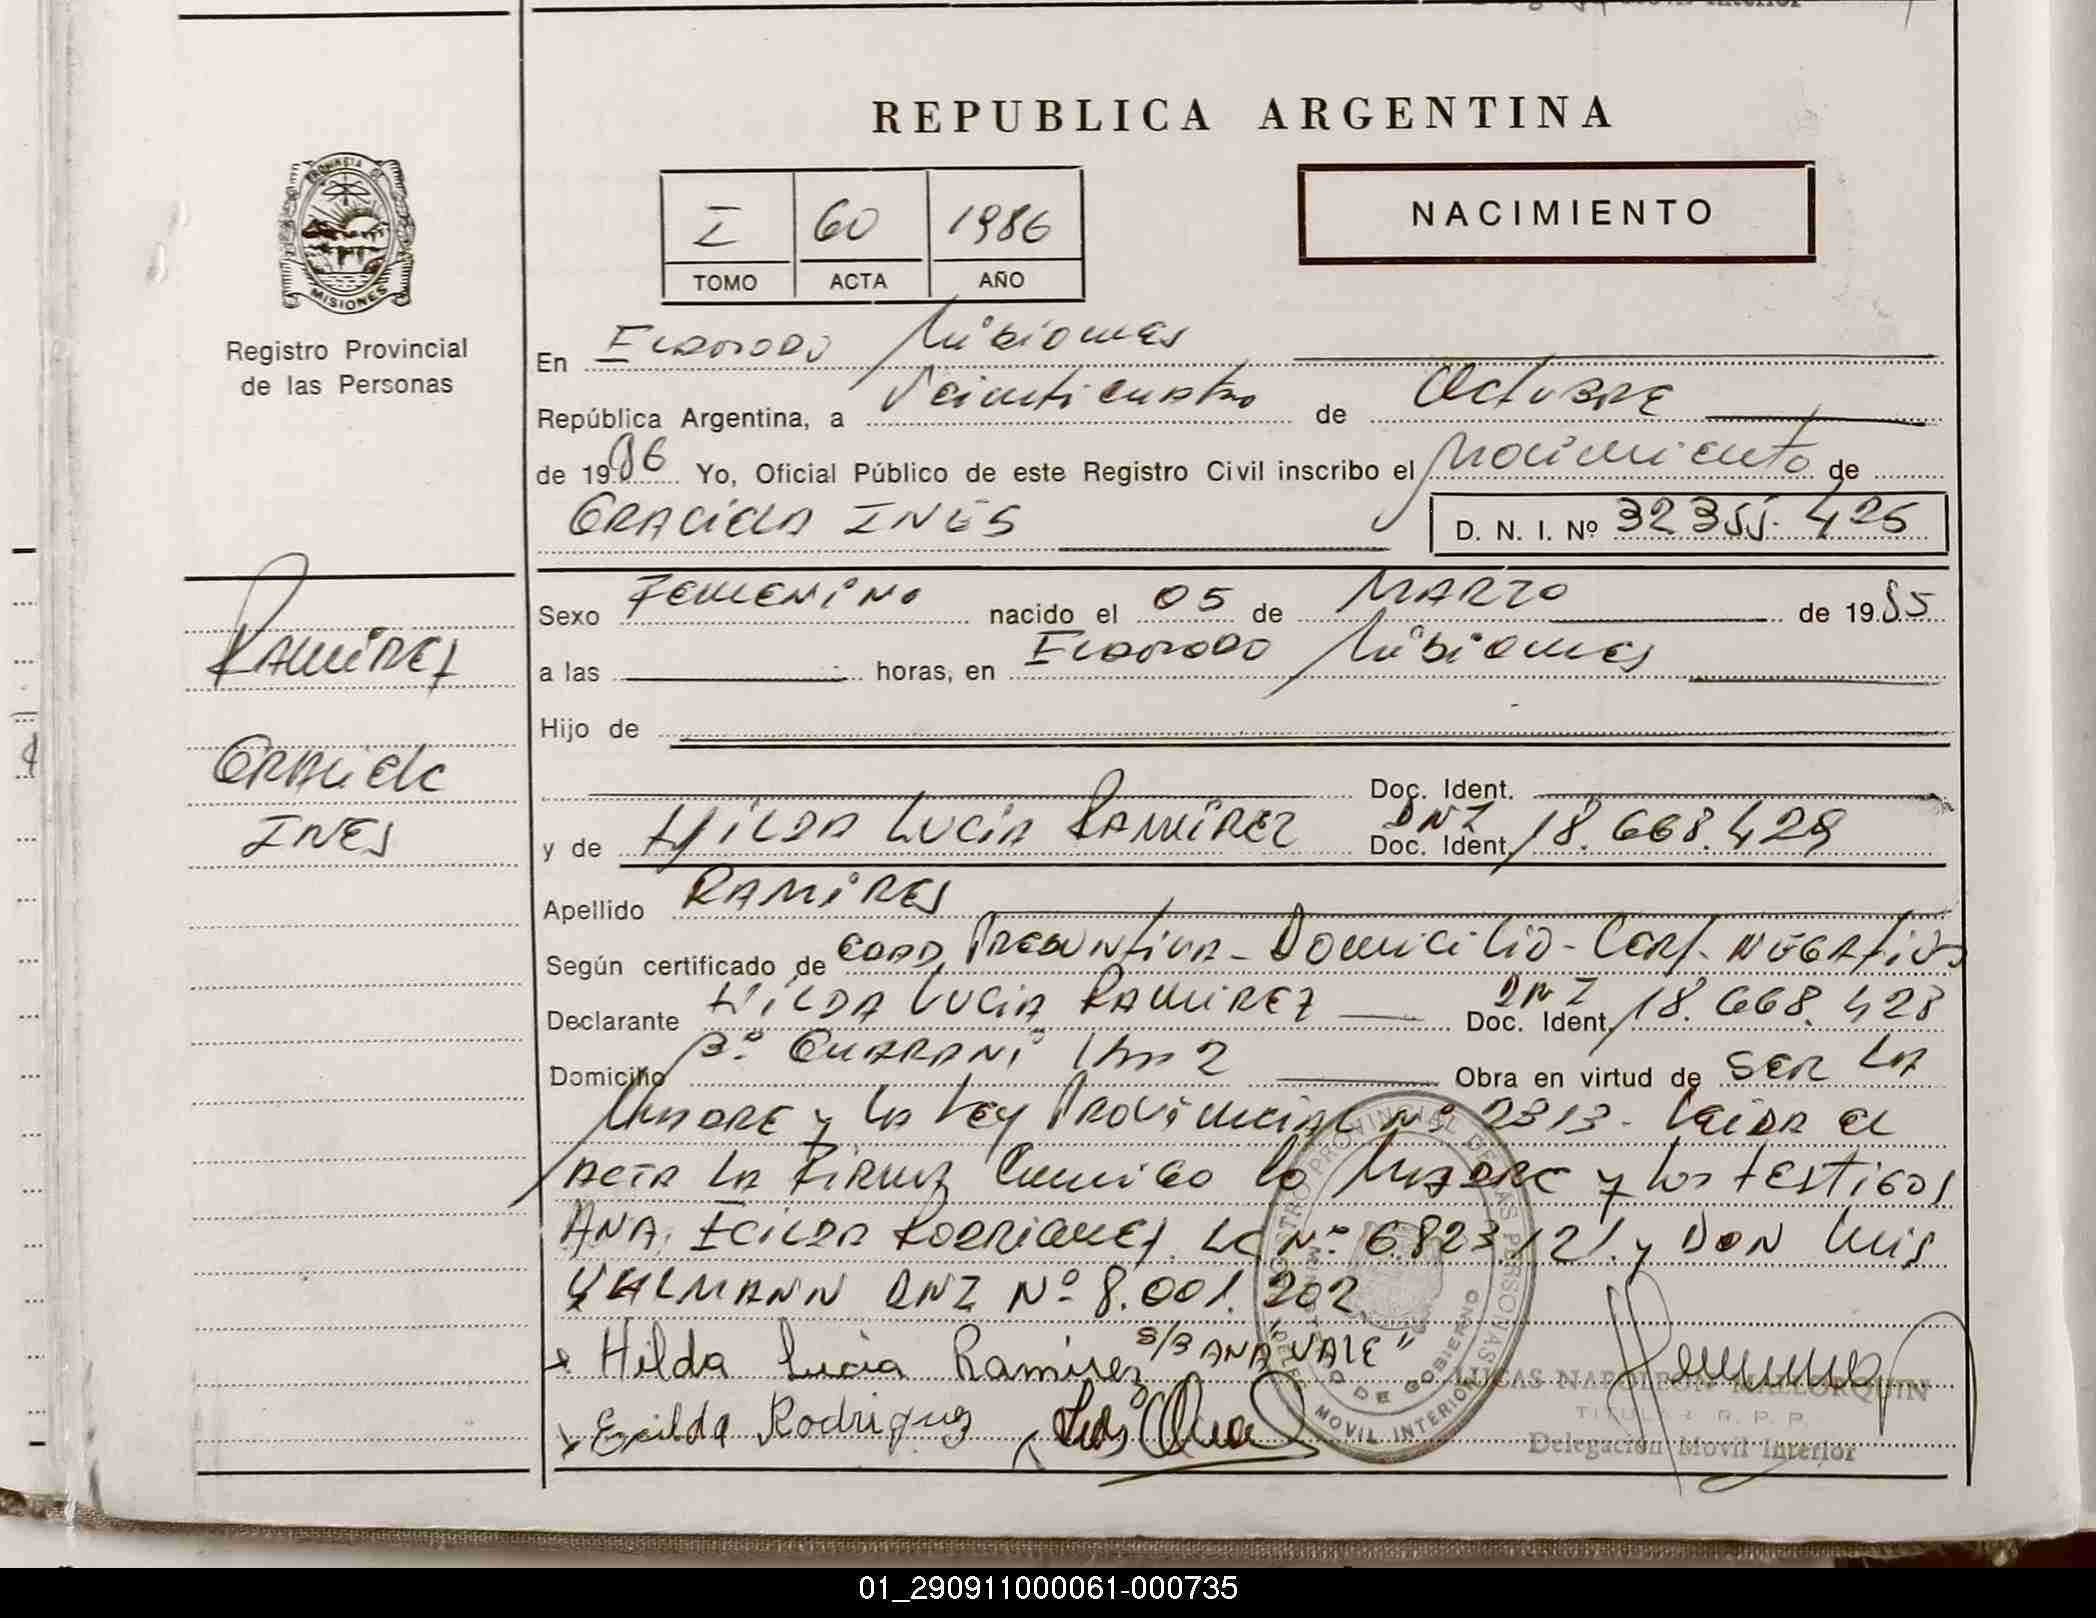 REPUBLICA ARGENTINA
PROVINCIA DE
MISIONES
Registro Provincial
de las Personas
I 60 1986
TOMO ACTA AÑO
NACIMIENTO
En Eldorado Misiones
República Argentina, a Veinticuatro de Octubre
de 1986 Yo, Oficial Público de este Registro Civil inscribo el Nacimiento de
GRACIELA INES D. N. I. Nº 32355.425
Sexo FEMENINO nacido el 05 de MARZO de 1985
a las horas, en Eldorado Misiones
Hijo de
Doc. Ident.
y de HILDA LUCIA RAMIREZ Doc. Ident. DNI 18.668.429
Apellido RAMIRES
Según certificado de EDAD PRESUNTIVA - Domicilio - Cert. NEGATIVO
Declarante HILDA LUCIA RAMIREZ Doc. Ident. DNI 18.668.428
Domicilio Bº GUARANI Km 2 Obra en virtud de SER LA
MADRE y LA Ley PROVINCIAL Nº 2313. Leida el
ACTA LA FIRMA Conmigo la MADRE y los testigos
ANA EGILDA RODRIGUEZ LC Nº 6.823.121. y DON Luis
DNI Nº 8.001.202
S/B ANA "VALE"
Hilda Lucia Ramirez
Egilda Rodriguez Luis
RAMIREZ
GRACIELA
INES
REGISTRO PROVINCIAL DE LAS PERSONAS
MINISTERIO DE GOBIERNO
MOVIL INTERIOR
LUCAS NAPOLEON MALLORQUIN
TITULAR R. P. P.
Delegación Movil Interior
01_290911000061-000735